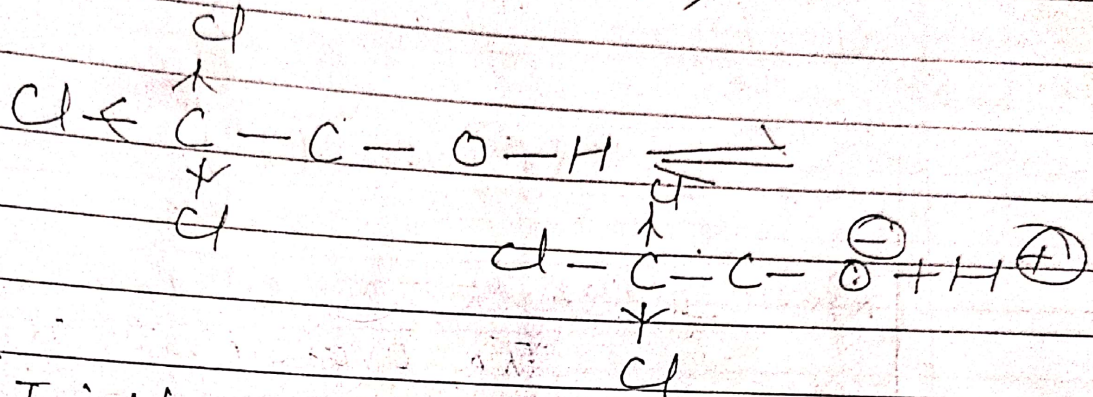 Cl
Cl ← C — C — O — H ⇌
Cl
Cl
Cl — C — C — O ⊖ + H ⊕
Cl